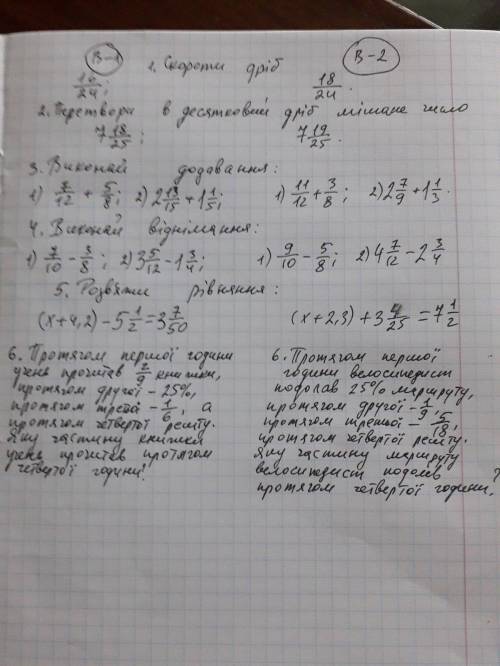 В-1 В-2
1. Скороти дріб
16/24; 18/24.
2. Перетвори в десятковий дріб мішане число
7 18/25; 7 19/25.
3. Виконай додавання:
1) 7/12 + 5/8; 2) 2 13/15 + 1 1/5; 1) 11/12 + 3/8; 2) 2 7/9 + 1 1/3.
4. Виконай віднімання:
1) 7/10 - 3/8; 2) 3 5/12 - 1 3/4; 1) 9/10 - 5/8; 2) 4 7/12 - 2 3/4
5. Розвяжи рівняння:
(x + 4,2) - 5 1/2 = 3 7/50 (x + 2,3) + 3 4/25 = 7 1/2
6. Протягом першої години
учень прочитав 2/9 книжки,
протягом другої - 25%,
протягом третьої - 1/6, а
протягом четвертої решту.
Яку частину книжки
учень прочитав протягом
четвертої години?
6. Протягом першої
години велосипедист
подолав 25% маршруту,
протягом другої - 1/9,
протягом третьої - 5/18,
протягом четвертої решту.
Яку частину маршруту
велосипедист подолав
протягом четвертої години?